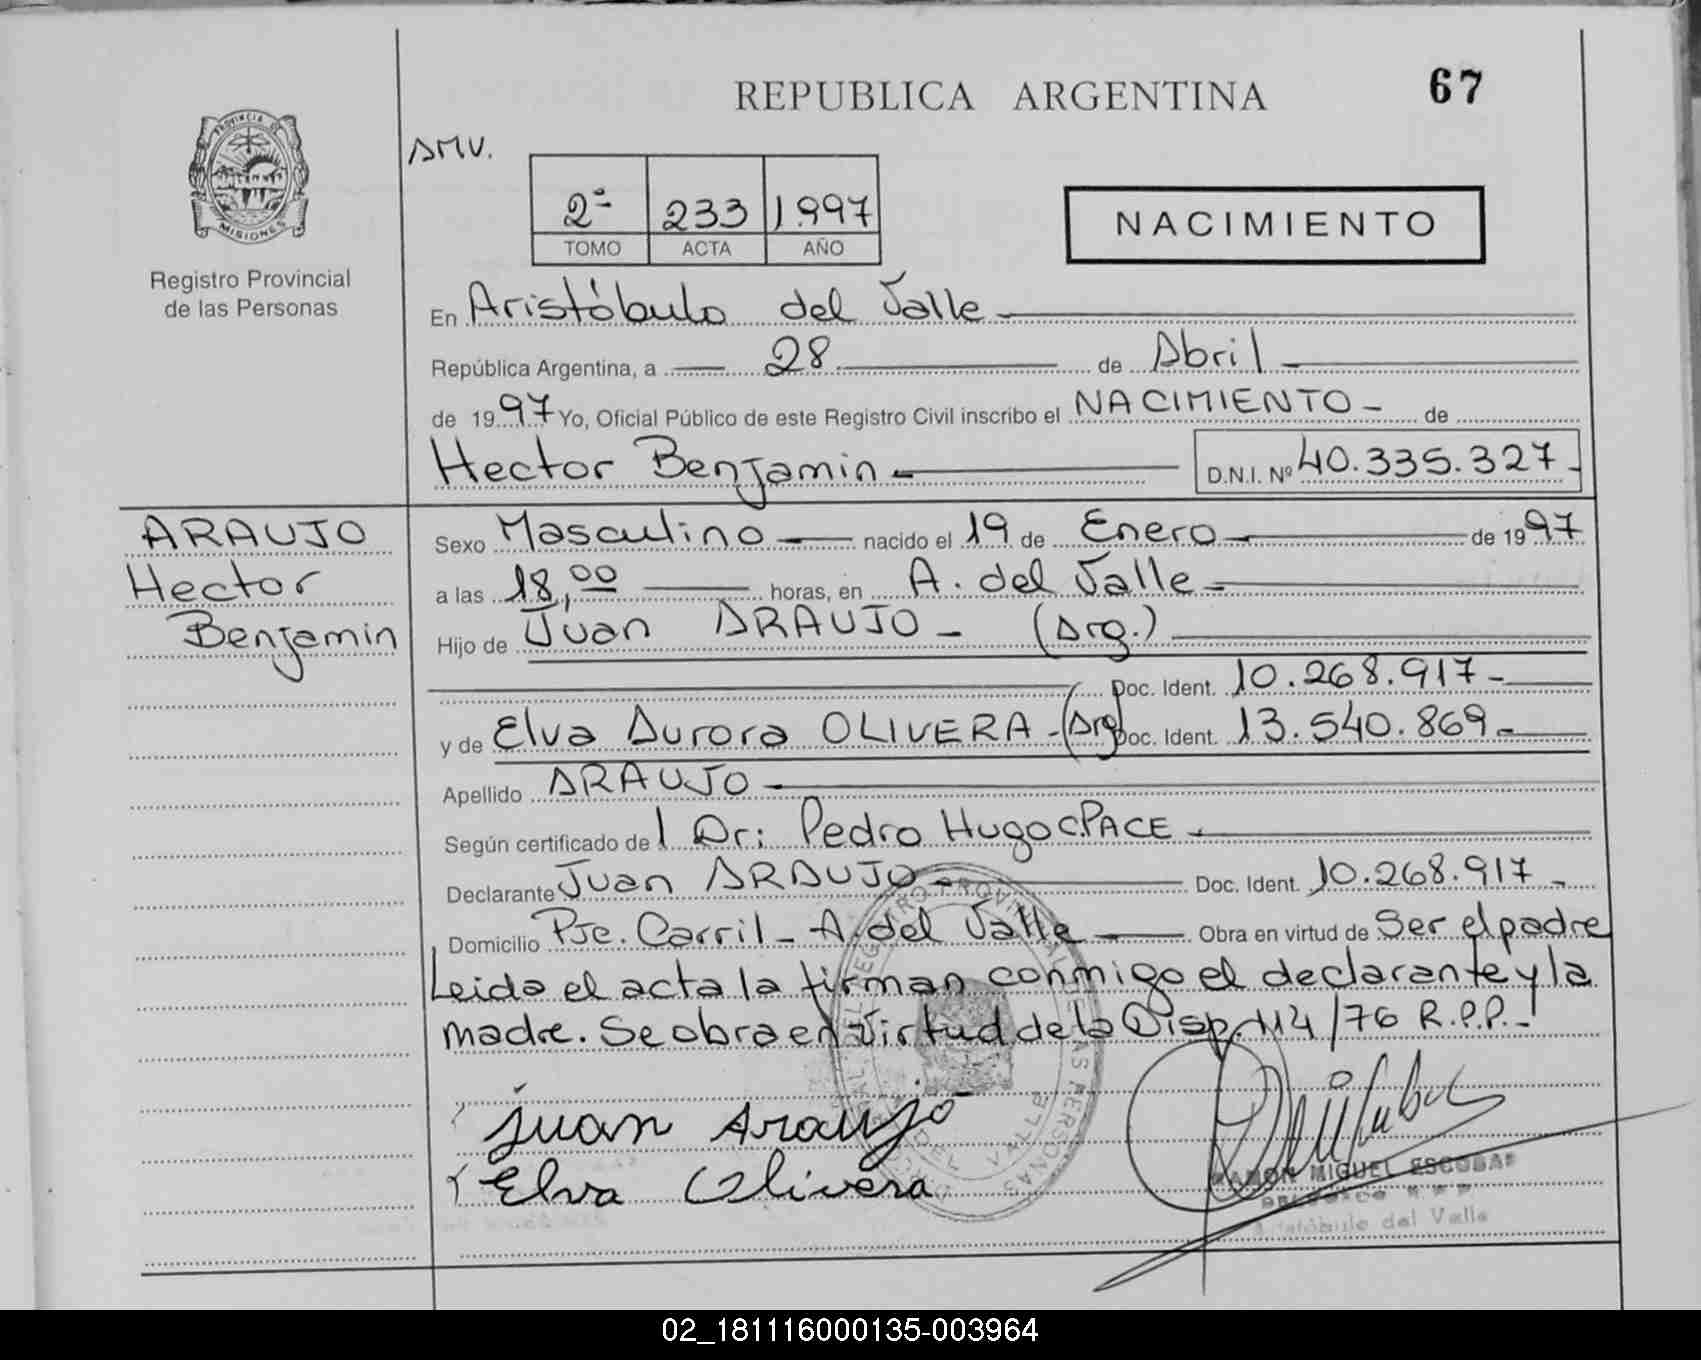 REPUBLICA ARGENTINA
67
PROVINCIA DE
MISIONES
Registro Provincial
de las Personas
AMV.
2ª 233 1.997
TOMO ACTA AÑO
NACIMIENTO
En Aristóbulo del Valle
República Argentina, a 28 de Abril
de 1997 Yo, Oficial Público de este Registro Civil inscribo el NACIMIENTO - de
Hector Benjamin D.N.I. Nº 40.335.327-
ARAUJO
Hector
Benjamin
Sexo Masculino nacido el 19 de Enero de 1997
a las 18,00 horas, en A. del Valle
Hijo de Juan ARAUJO - (Arg.)
Doc. Ident. 10.268.917-
y de Elva Aurora OLIVERA - (Arg) Doc. Ident. 13.540.869-
Apellido ARAUJO
Según certificado del Dr: Pedro Hugo C. PACE
Declarante Juan ARAUJO Doc. Ident. 10.268.917-
Domicilio Pje. Carril - A. del Valle Obra en virtud de Ser el padre
Leida el acta la firman conmigo el declarante y la
madre. Se obra en virtud de la Disp. 114/76 R.P.P.-
Juan Araujo
Elva Olivera
RAMON MIGUEL ESCOBAR
Aristóbulo del Valle
02_181116000135-003964